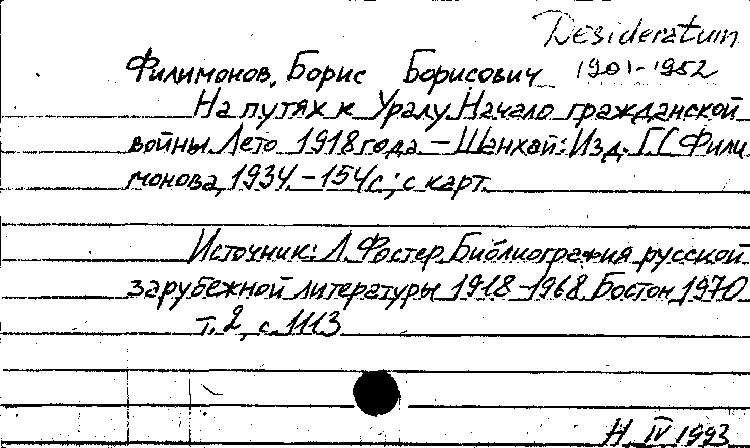 Desideratum
Филимонов, Борис Борисович 1901-1952
На путях к Уралу. Начало гражданской
войны. Лето 1918 года. – Шанхай: Изд. Фили
монова, 1934. – 154с.; с карт.
Источник: Л. Фостер. Библиография русской
зарубежной литературы 1918-1968. Бостон, 1970
т. 2, с. 1113
Н. IV 1993